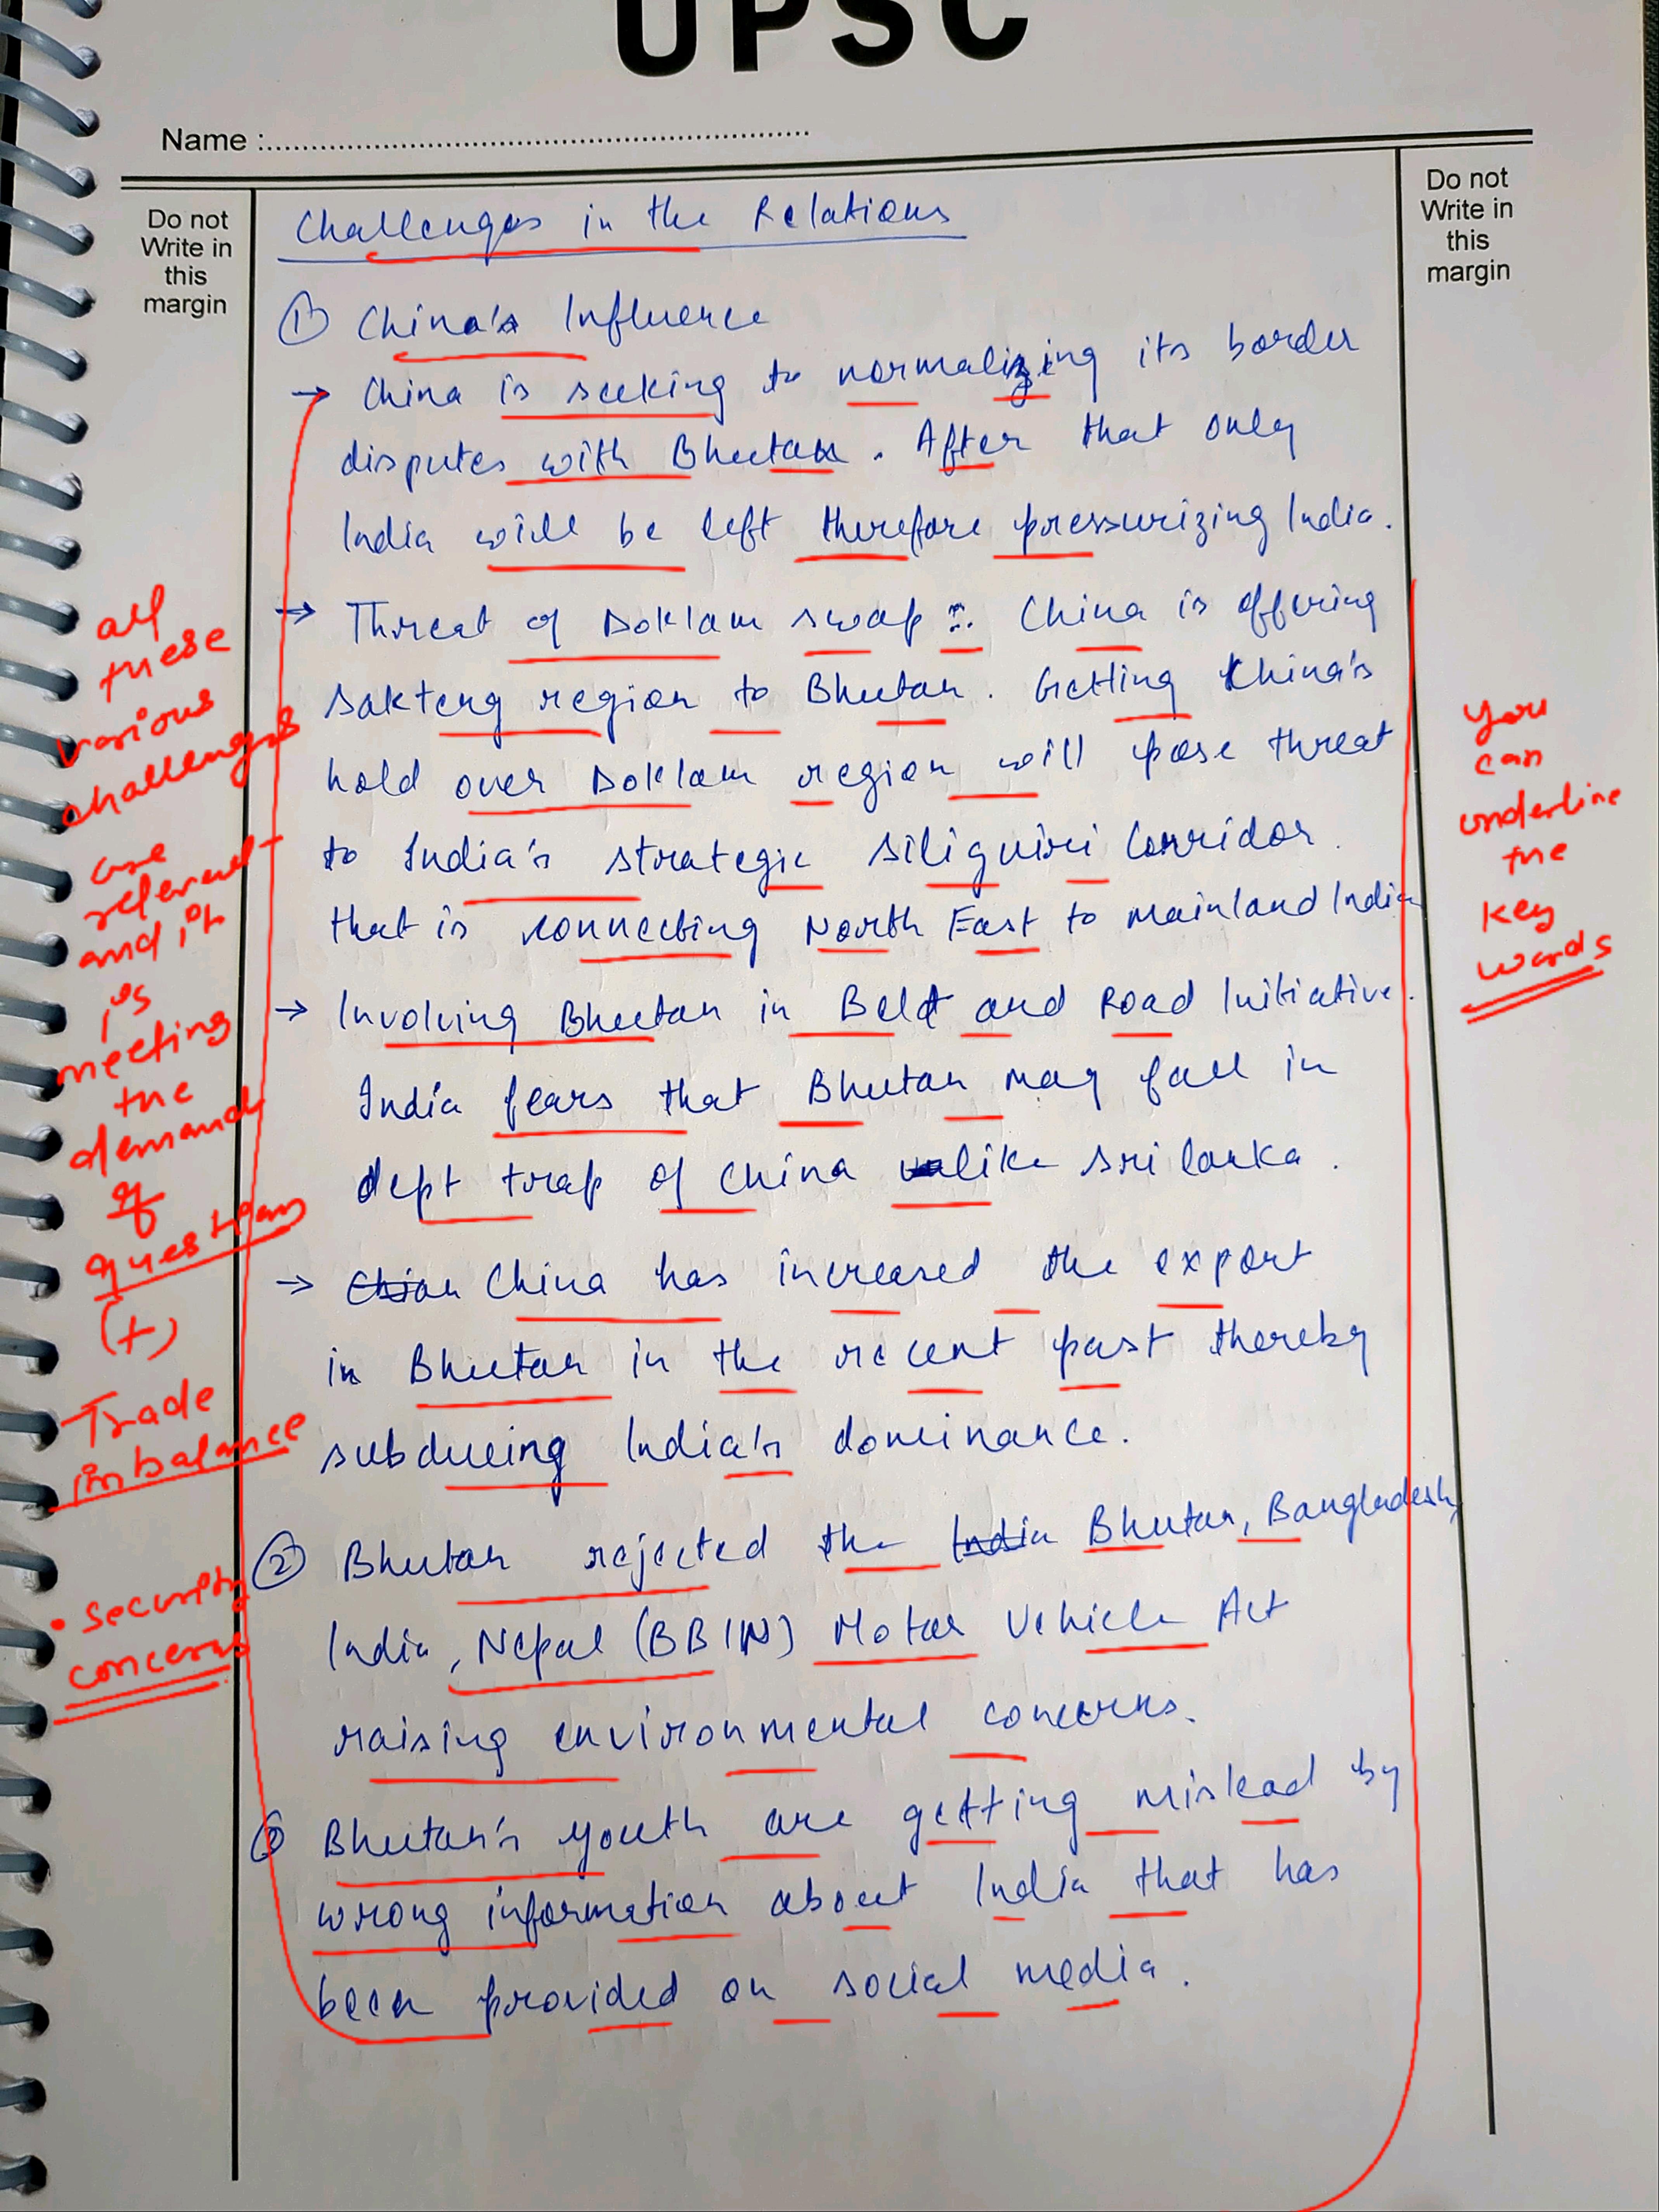 UPSC
Name :
Do not
Write in
this
margin
Do not
Write in
this
margin
Challenges in the Relations
① China's Influence
→ China is seeking to normalizing its border
disputes with Bhutan. After that only
India will be left therefore pressurizing India.
→ Threat of Doklam swap :. China is offering
Sakteng region to Bhutan. Getting China's
hold over Doklam region will pose threat
to India's strategic Siliguiri Corridor
that is connecting North East to Mainland India
→ Involving Bhutan in Belt and Road Initiative.
India fears that Bhutan may fall in
dept trap of China like Sri lanka.
→ China has increased the export
in Bhutan in the recent past thereby
subdueing India's dominance.
② Bhutan rejected the India Bhutan, Bangladesh,
India, Nepal (BBIN) Motor Vehicle Act
raising environmental concerns.
③ Bhutan's youth are getting mislead by
wrong information about India that has
been provided on social media.
all
these
various
challenges
are
relevant
and it
is
meeting
the
demand
of
question
(+)
- Trade
imbalance
• Security
concerns
You
can
underline
the
key
words